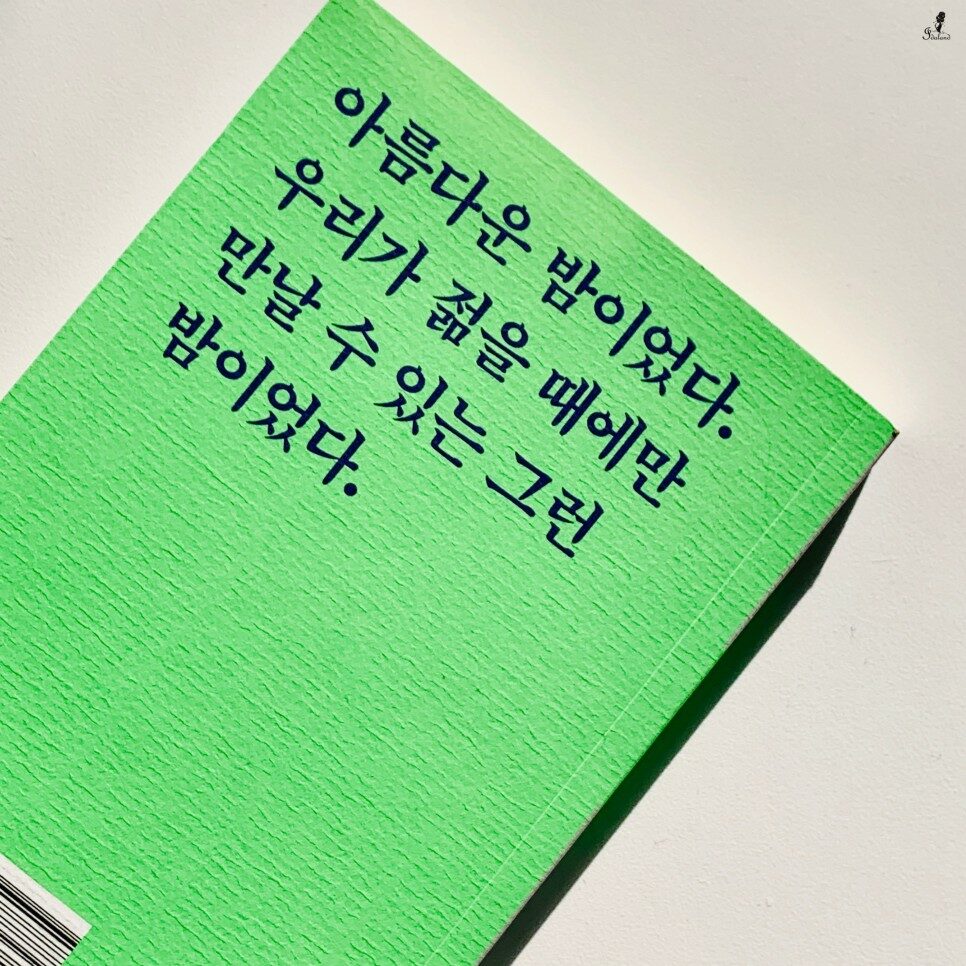 아름다운 밤이었다.
우리가 젊을 때에만
만날 수 있는 그런
밤이었다.